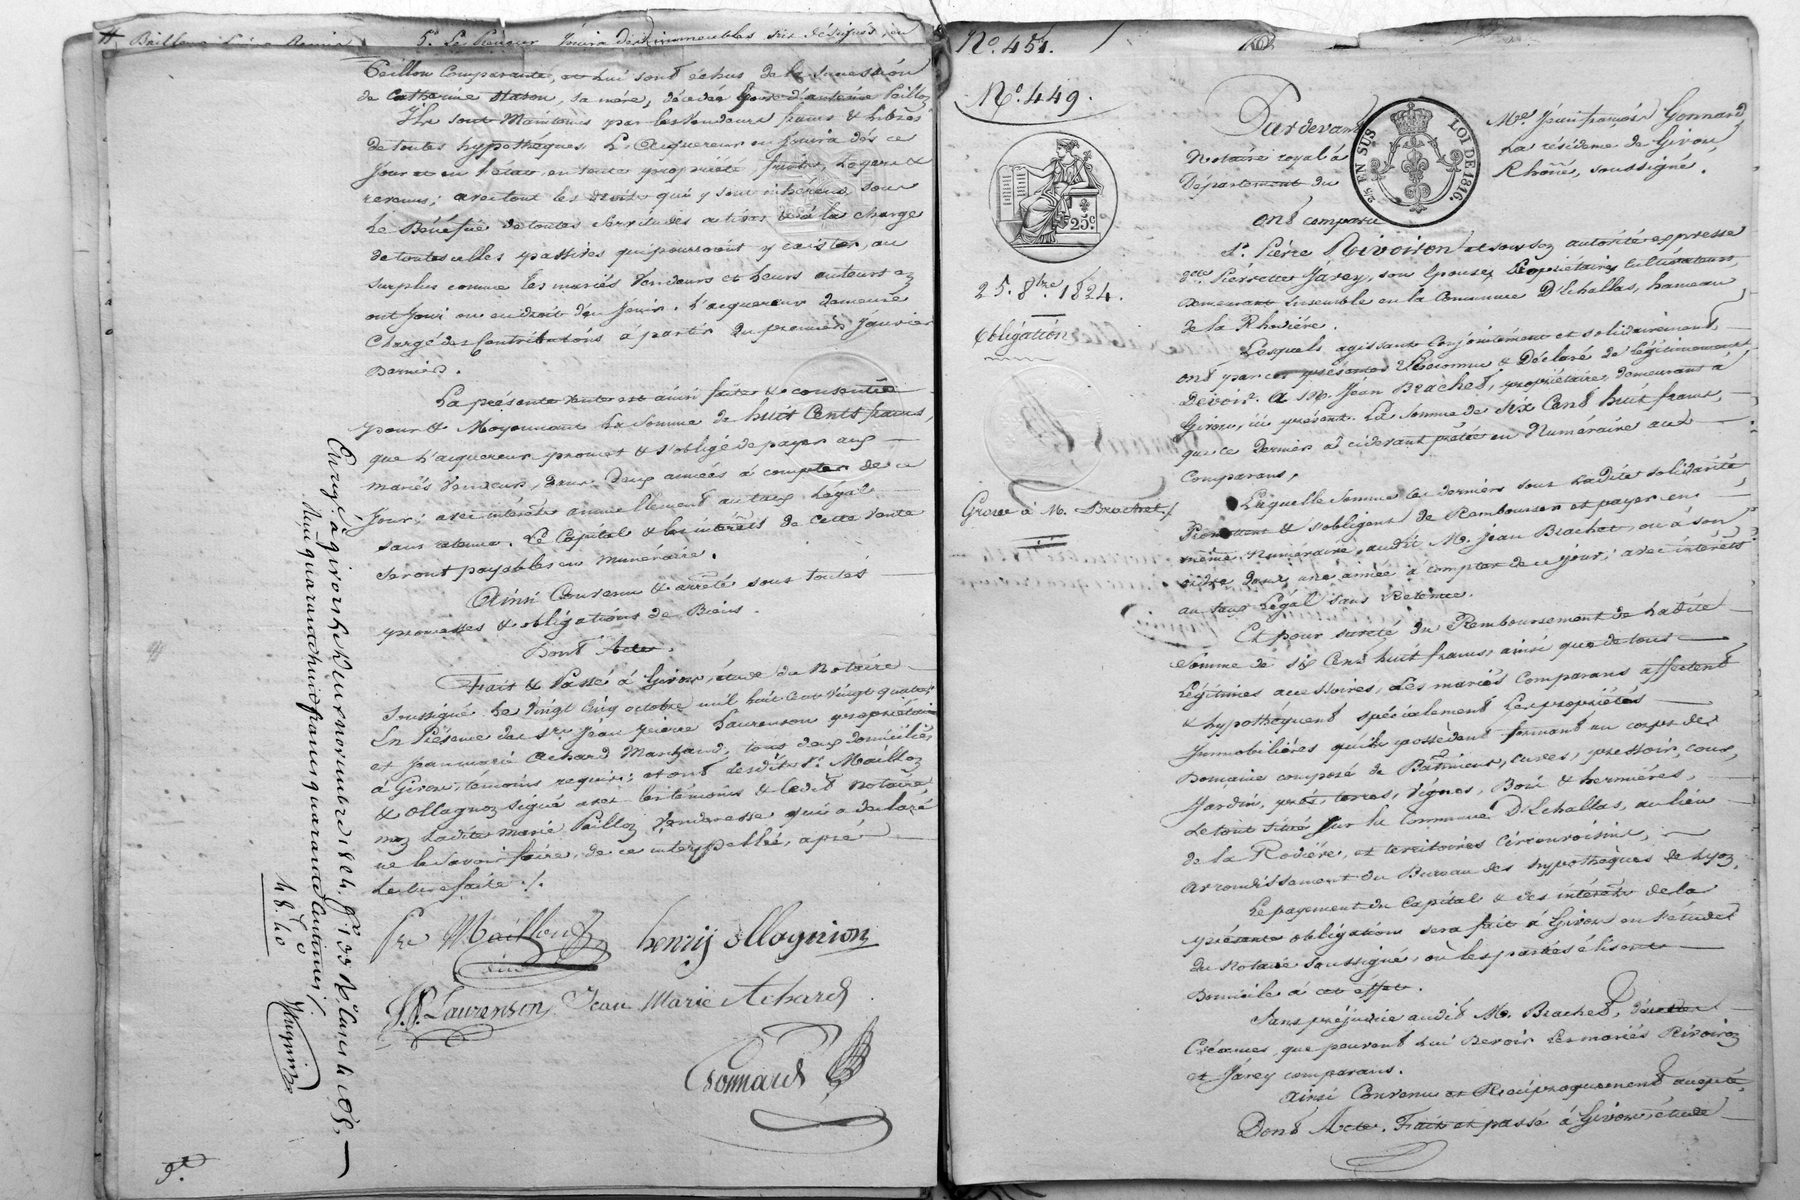 5. Le Preneur Jouira des immeubles sus désignés, en
Paillon Comparante, et lui sont échus de la Succession
de Catherine Mason, sa mère, décédée épouse d'antoine Paillon
Ils sont Maintenus par les Vendeurs francs & libres
de toutes hypothèques. L'Acquereur en Jouira dès ce
Jour et en l'état, en toute propriété, fruits, Loyers &
revenus; avec tous les droits qui y sont inhérens, sous
le Bénéfice de toutes Servitudes actives & à la charge
de toutes celles passives qui pourroient y exister, au
surplus comme les mariés Vendeurs et leurs auteurs en
ont Joui ou eu droit d'en Jouir. L'acquereur demeure
Chargé des Contributions à partir du premier Janvier
dernier.
La présente vente est ainsi faite & consentie
pour & Moyennant la Somme de huit Cents francs,
que l'acquereur promet & s'oblige de payer aux
mariés Vendeurs, dans deux années à compter de ce
Jour; avec intérêts annuellement au taux légal
sans retenue. Le Capital & les intérêts de cette vente
seront payables en numéraire.
Ainsi Convenu & arrêté sous toutes
promesses & obligations de Biens.
Dont Acte.
Fait & Passé à Givors, étude du Notaire
soussigné Le Vingt Cinq octobre mil huit Cent Vingt quatre
En Présence des Srs Jean Pierre Laurenson propriétaire
et Jean marie Achard Marchand, tous deux domiciliés
à Givors, témoins requis; et ont lesdits Sr Maillon
& Ollagnon signé avec les témoins & ledit Notaire,
non ladite marie Paillon Venderesse qui a déclaré
ne le savoir faire, de ce interpellée, après
Lecture faite ./.
Pre Maillon henrij ollagnion
J.P. Laurenson Jean Marie Achard
Gonnard
Enregé à givors le Neuf novembre 1824. fo 133 Ro Cases 4 et 5.
Reçu quarante huit francs quarante Centimes /.
48.40
No. 451.
No. 449.
25c.
25. 8bre 1824.
Obligation
Grosse à M. Brachet
Pardevant Me. Jean françois Gonnard,
Notaire royal à la résidence de Givors,
Département du Rhône, soussigné.
2/5 EN SUS LOI DE 1816.
ont comparu
Sr. Pierre Rivoiron et sous son autorité expresse
dlle Pierrette Jarey, son épouse, Propriétaires Cultivateurs,
demeurant Ensemble en la Commune D'Echallas, hameau
de la Rhodière.
Lesquels agissant Conjointement et solidairement
ont par ces présentes Reconnu & Déclaré de légitimement
Devoir. A M. Jean Brachet, propriétaire, demeurant à
Givors, ici présent. La Somme de Six Cent huit francs,
que ce dernier a ci devant prêtée en Numéraire aux
Comparans,
Laquelle Somme les derniers sous ladite solidarité
Promettent & s'obligent de Rembourser et payer en
même Numéraire, audit M. Jean Brachet, ou à son
ordre dans une année à compter de ce jour; avec intérêts
au taux Légal sans Retenue.
Et pour sureté du Remboursement de ladite
Somme de Six Cent huit francs, ainsi que de tous
Légitimes accessoires, Les mariés Comparans affectent
& hypothèquent spécialement Les propriétés
Immobilières qu'ils possèdent formant un corps de
Domaine composé de Bâtimens, Cuves, pressoir, Cour,
Jardin, prés, terres, Vignes, Bois & hermières,
Le tout Situé sur la Commune D'Echallas, au lieu
de la Rodière, et territoires Circonvoisins,
arrondissement du Bureau des hypothèques de Lyon,
Le payement du Capital & des intérêts de la
présente obligation sera fait à Givors en l'étude
du Notaire Soussigné, où les parties élisent
Domicile à cet effet.
Sans préjudice audit M. Brachet, d'autres
Créances, que peuvent lui Devoir Les mariés Rivoiron
et Jarey comparans.
Ainsi Convenu et Réciproquement accepté.
Dont Acte. Fait et passé à Givors, étude